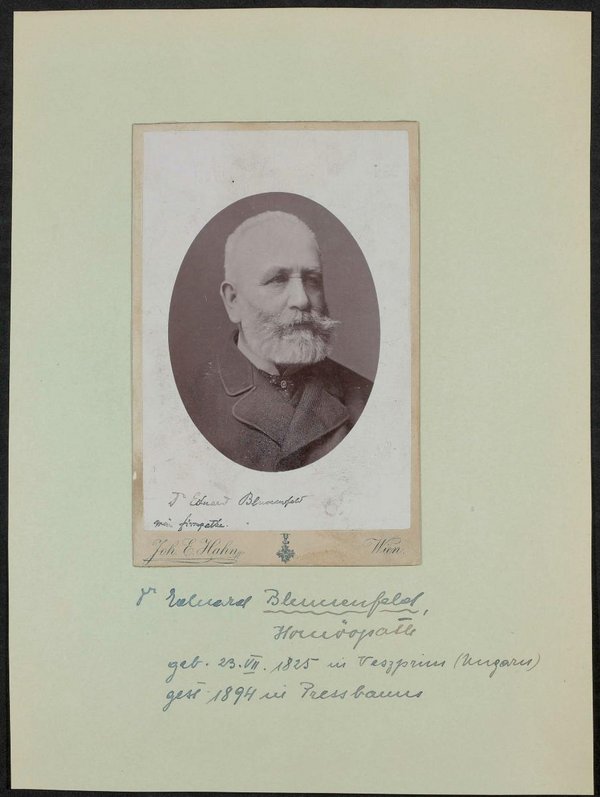 Dr Eduard Blumenfeld
Joh. E. Hahn
Wien.
Dr Eduard Blumenfeld,
Homöopath
geb. 23. VII. 1825 in Veszprim (Ungarn)
gest 1894 in Pressbaum